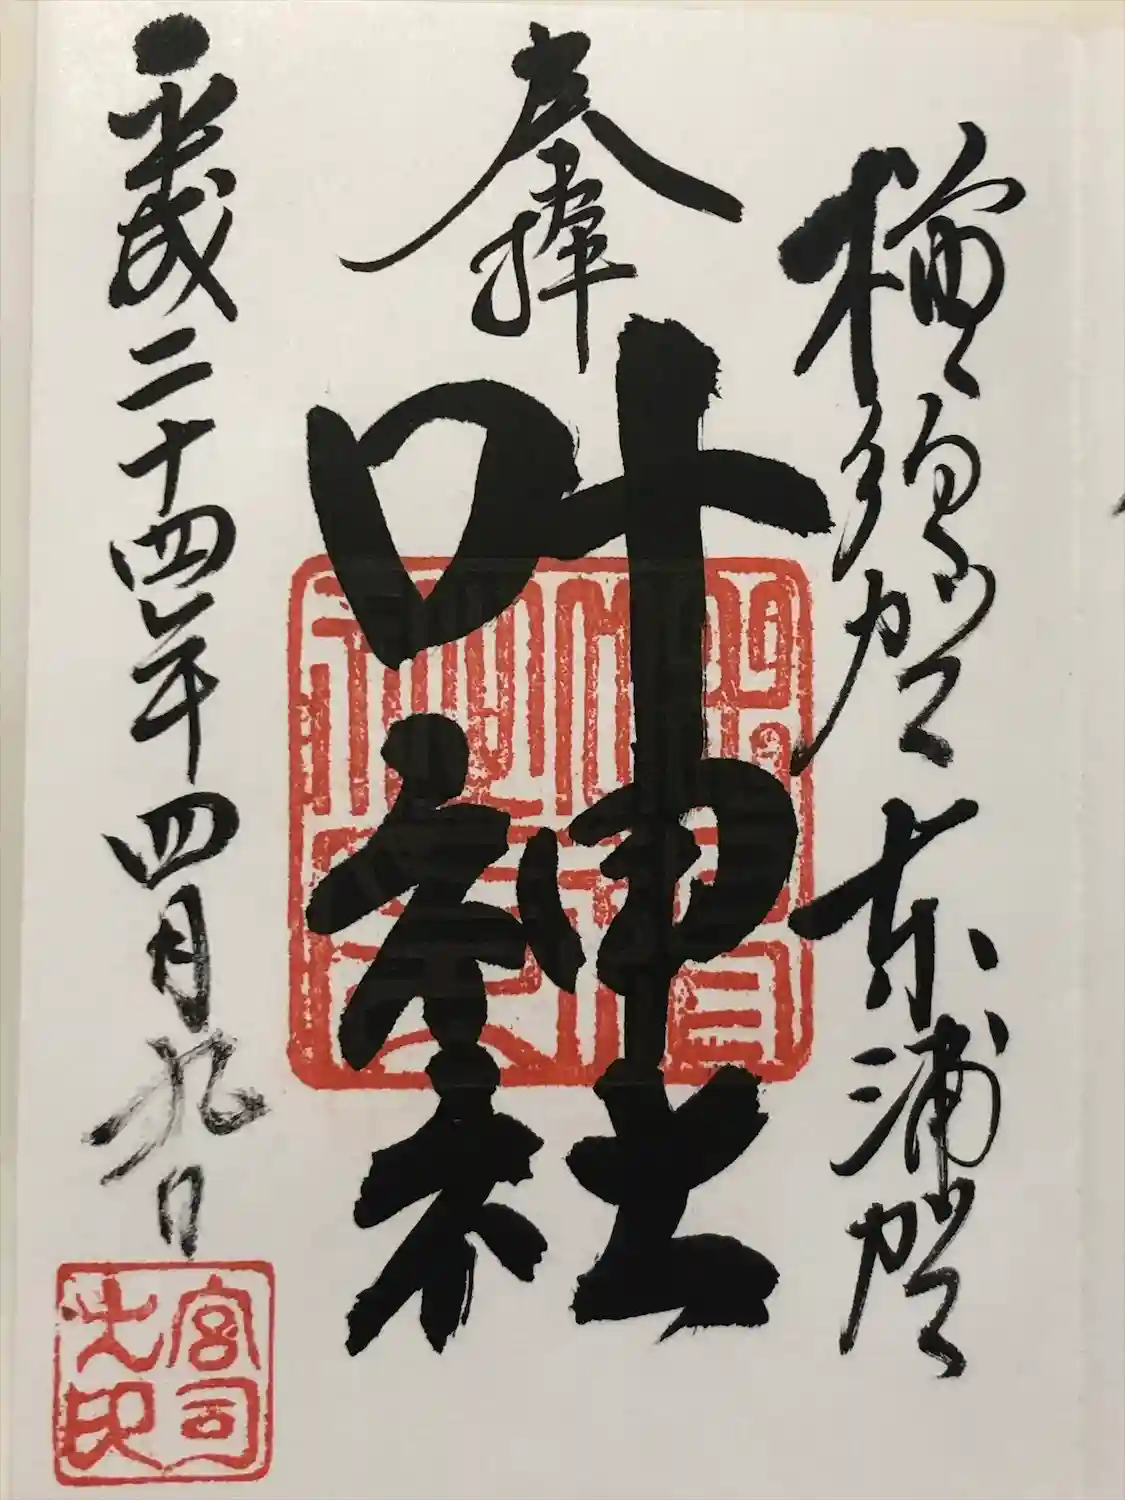 横須賀東浦賀
奉拝
叶神社
平成二十四年四月九日
宮司
之印